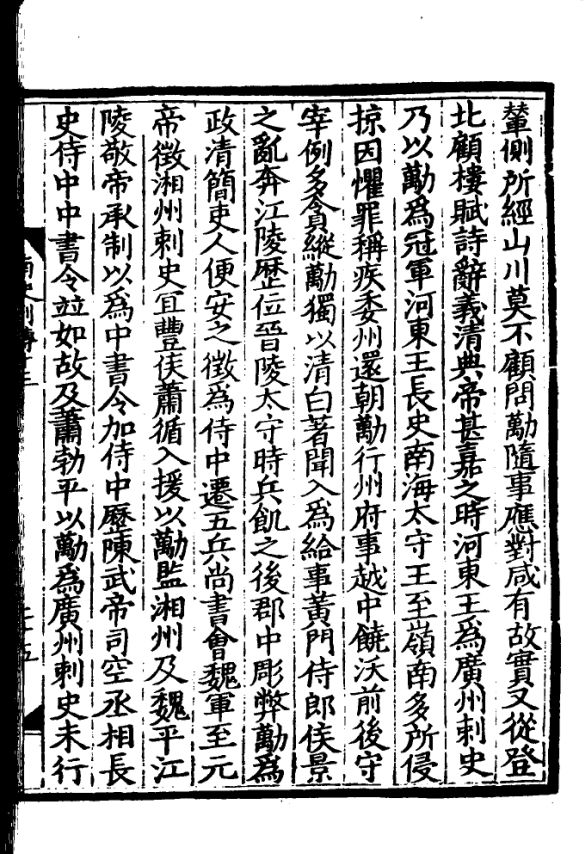 輦側所經山川莫不顧問勱隨事應對咸有故實又從登
北顧樓賦詩辭義清典帝甚嘉之時河東王爲廣州刺史
乃以勱爲冠軍河東王長史南海太守王至嶺南多所侵
掠因懼罪稱疾委州還朝勱行州府事越中饒沃前後守
宰例多貪縱勱獨以清白著聞入爲給事黃門侍郎侯景
之亂奔江陵歷位晉陵太守時兵飢之後郡中彫弊勱爲
政清簡吏人便安之徵爲侍中遷五兵尚書會魏軍至元
帝徵湘州刺史宜豐侯蕭循入援以勱監湘州及魏平江
陵敬帝承制以爲中書令加侍中歷陳武帝司空丞相長
史侍中中書令竝如故及蕭勃平以勱爲廣州刺史未行